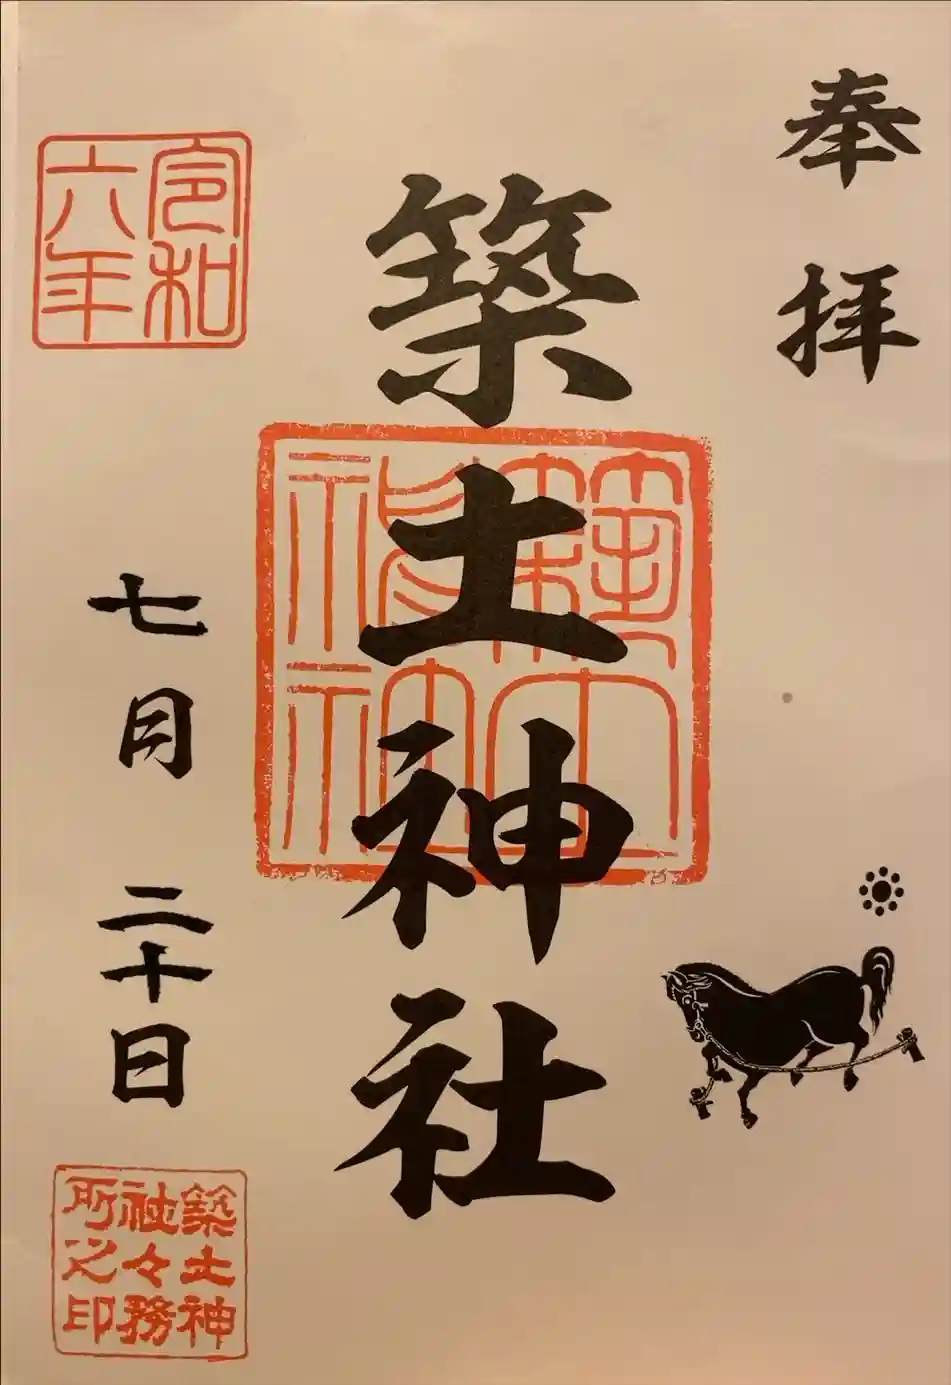 奉拝
築土神社
築土神社
令和六年
七月二十日
築土神社々務所之印